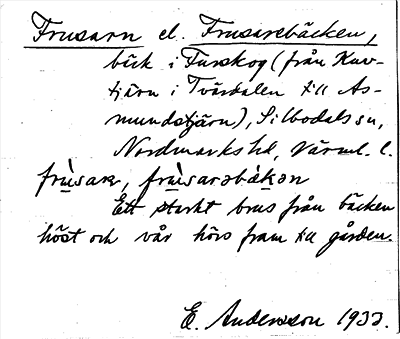 Frusarn el. Frusarebäcken,
bäck i Furskog (från Kav-
tjärn i Tvärdalen till As-
mundstjärn), Silbodals sn,
Nordmarks hd, Värml. l.
frùsaɽ, frùsarəbäkən
Ett starkt brus från bäcken
höst och vår hörs fram till gården.
E. Andersson 1933.